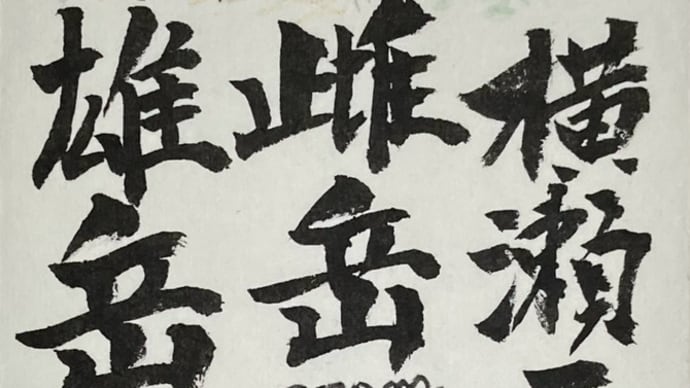 横瀬
雌岳
雄岳